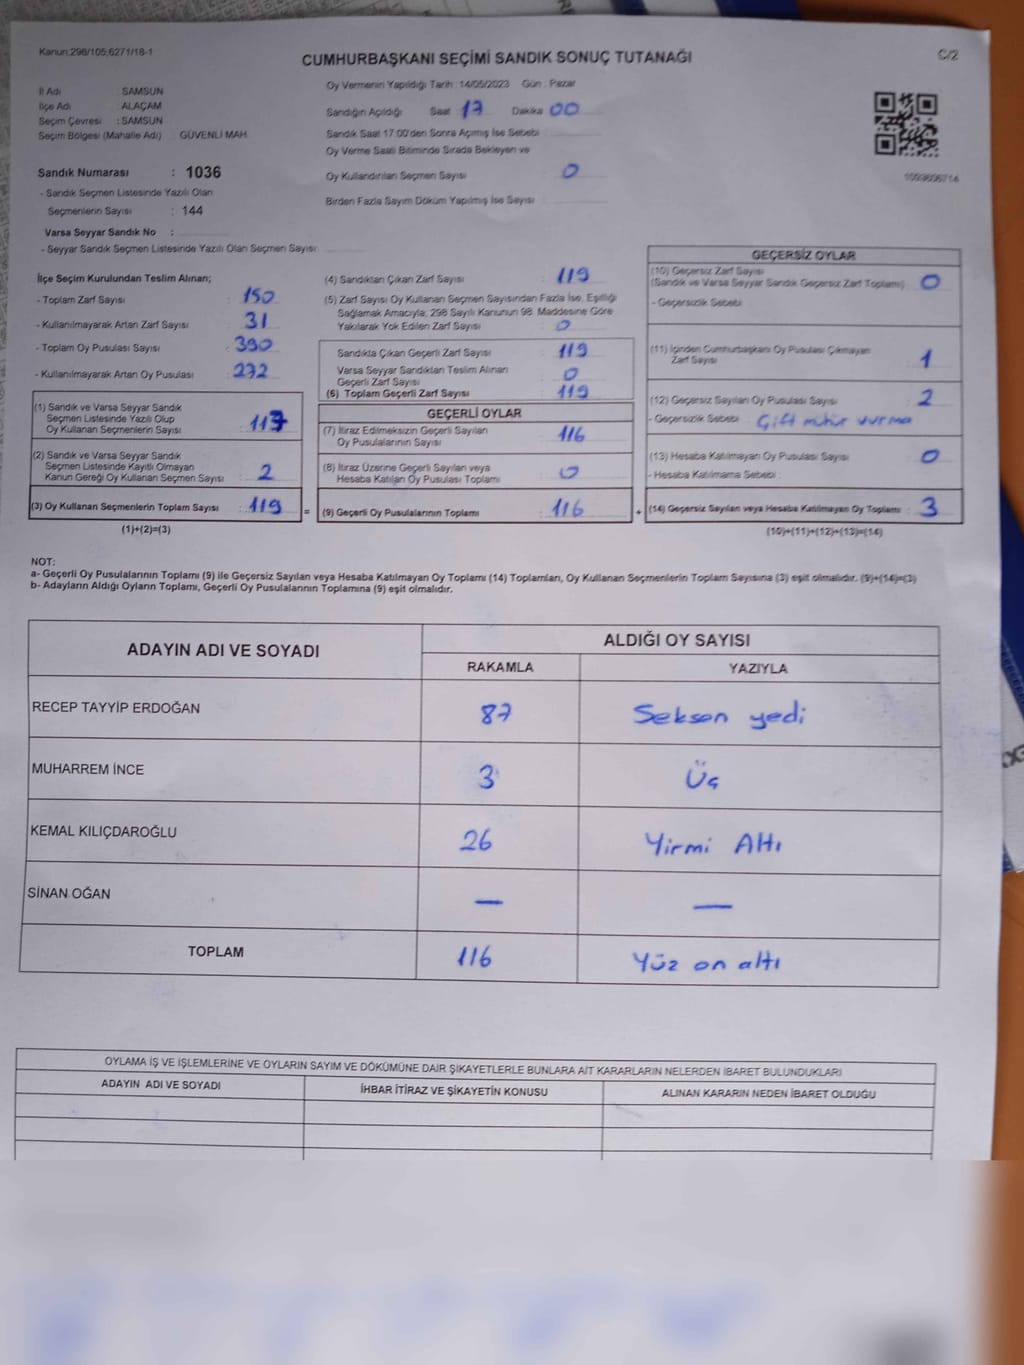 Kanun:298/105,6271/18-1
CUMHURBAŞKANI SEÇİMİ SANDIK SONUÇ TUTANAĞI
C/2
İl Adı SAMSUN
İlçe Adı ALAÇAM
Seçim Çevresi : SAMSUN
Seçim Bölgesi (Mahalle Adı) GÜVENLİ MAH.
Oy Vermenin Yapıldığı Tarih :14/05/2023 Gün : Pazar
Sandığın Açıldığı Saat 17 Dakika 00
Sandık Saat 17:00'den Sonra Açımış İse Sebebi
Oy Verme Saati Bitiminde Sırada Bekleyen ve
Oy Kullandırılan Seçmen Sayısı 0
Birden Fazla Sayım Döküm Yapılmış İse Sayısı
Sandık Numarası : 1036
- Sandık Seçmen Listesinde Yazılı Olan
Seçmenlerin Sayısı : 144
Varsa Seyyar Sandık No :
- Seyyar Sandık Seçmen Listesinde Yazılı Olan Seçmen Sayısı:
İlçe Seçim Kurulundan Teslim Alınan;
- Toplam Zarf Sayısı : 150
- Kullanılmayarak Artan Zarf Sayısı : 31
- Toplam Oy Pusulası Sayısı : 390
- Kullanılmayarak Artan Oy Pusulası : 272
(1) Sandık ve Varsa Seyyar Sandık
Seçmen Listesinde Yazılı Olup
Oy Kullanan Seçmenlerin Sayısı : 117
(2) Sandık ve Varsa Seyyar Sandık
Seçmen Listesinde Kayıtlı Olmayan
Kanun Gereği Oy Kullanan Seçmen Sayısı : 2
(3) Oy Kullanan Seçmenlerin Toplam Sayısı : 119
(1)+(2)=(3)
=
(4) Sandıktan Çıkan Zarf Sayısı : 119
(5) Zarf Sayısı Oy Kullanan Seçmen Sayısından Fazla İse, Eşitliği
Sağlamak Amacıyla, 298 Sayılı Kanunun 98. Maddesine Göre
Yakılarak Yok Edilen Zarf Sayısı : 0
Sandıkta Çıkan Geçerli Zarf Sayısı : 119
Varsa Seyyar Sandıktan Teslim Alınan
Geçerli Zarf Sayısı : 0
(6) Toplam Geçerli Zarf Sayısı : 119
GEÇERLİ OYLAR
(7) İtiraz Edilmeksizin Geçerli Sayılan
Oy Pusulalarının Sayısı : 116
(8) İtiraz Üzerine Geçerli Sayılan veya
Hesaba Katılan Oy Pusulası Toplamı : 0
(9) Geçerli Oy Pusulalarının Toplamı : 116
+
GEÇERSİZ OYLAR
(10) Geçersiz Zarf Sayısı
(Sandık ve Varsa Seyyar Sandık Geçersiz Zarf Toplamı) : 0
- Geçersizlik Sebebi :
(11) İçinden Cumhurbaşkanı Oy Pusulası Çıkmayan
Zarf Sayısı : 1
(12) Geçersiz Sayılan Oy Pusulası Sayısı : 2
- Geçersizlik Sebebi : Çift mühür vurma
(13) Hesaba Katılmayan Oy Pusulası Sayısı : 0
- Hesaba Katılmama Sebebi :
(14) Geçersiz Sayılan veya Hesaba Katılmayan Oy Toplamı : 3
(10)+(11)+(12)+(13)=(14)
NOT:
a- Geçerli Oy Pusulalarının Toplamı (9) ile Geçersiz Sayılan veya Hesaba Katılmayan Oy Toplamı (14) Toplamları, Oy Kullanan Seçmenlerin Toplam Sayısına (3) eşit olmalıdır. (9)+(14)=(3)
b- Adayların Aldığı Oyların Toplamı, Geçerli Oy Pusulalarının Toplamına (9) eşit olmalıdır.
ADAYIN ADI VE SOYADI ALDIĞI OY SAYISI
RAKAMLA YAZIYLA
RECEP TAYYİP ERDOĞAN 87 Seksen yedi
MUHARREM İNCE 3 Üç
KEMAL KILIÇDAROĞLU 26 Yirmi Altı
SİNAN OĞAN — —
TOPLAM 116 Yüz on altı
OYLAMA İŞ VE İŞLEMLERİNE VE OYLARIN SAYIM VE DÖKÜMÜNE DAİR ŞİKAYETLERLE BUNLARA AİT KARARLARIN NELERDEN İBARET BULUNDUKLARI
ADAYIN ADI VE SOYADI İHBAR İTİRAZ VE ŞİKAYETİN KONUSU ALINAN KARARIN NEDEN İBARET OLDUĞU